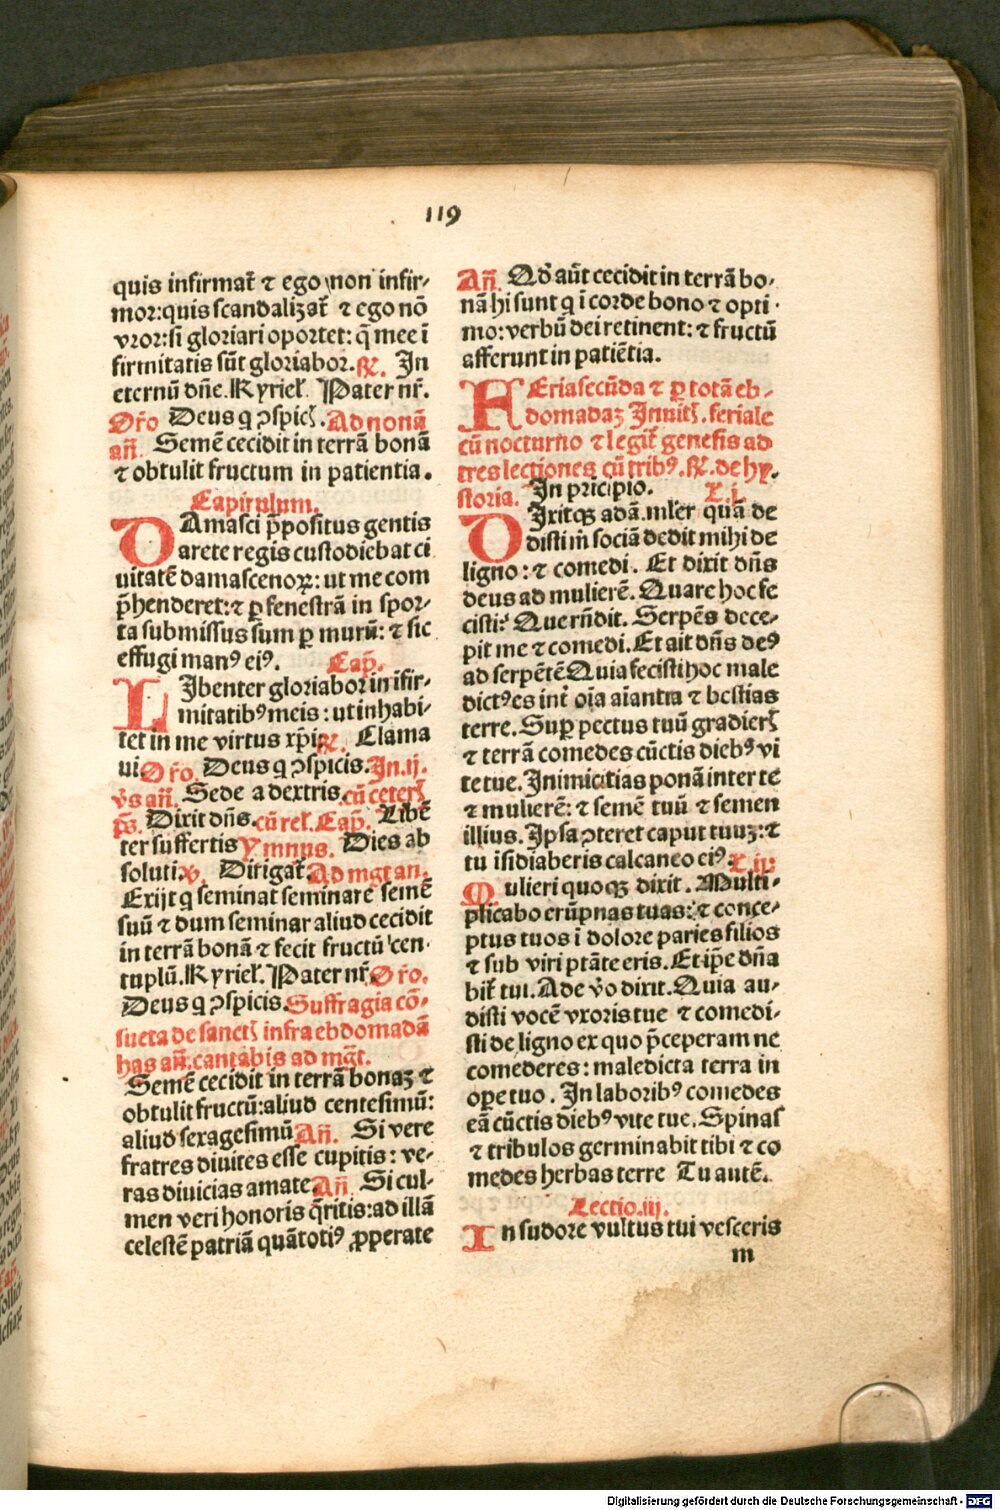 119
quis infirmat᷑ ⁊ ego non infir-
mor:quis scandalizat᷑ ⁊ ego nō
vror:si gloriari oportet: q̄ mee ī
firmitatis sūt gloriabor. ℟. In
eternū dn̄e. Kyriel᷑. Pater nr̄.
Or̄o Deus q ꝯspicꝭ. Ad nonā
an̄. Semē cecidit in terrā bonā
⁊ obtulit fructum in patientia.
Capitulum.
DAmasci p̄positus gentis
arete regis custodiebat ci
uitatē damascenoꝝ: ut me com
p̄henderet: ⁊ ꝑ fenestrā in spor-
ta submissus sum ꝑ murū: ⁊ sic
effugi manꝰ eiꝰ. Cap̄.
LIbenter gloriabor in īfir-
mitatibꝰ meis: ut inhabi-
tet in me virtus xp̄i ℟. Clama
ui. Or̄o. Deus q ꝯspicis. In .ij.
v̄s an̄. Sede a dextris. cū ceterꝭ
ps̄. Dixit dn̄s. cū rel᷑. Cap̄. Libē
ter suffertis Ymnus. Dies ab
soluti. ℣. Dirigat᷑. Ad mgt an.
Exijt q seminat seminare semē
suū ⁊ dum seminar aliud cecidit
in terrā bonā ⁊ fecit fructū cen-
tuplū. Kyriel᷑. Pater nr̄ Or̄o.
Deus q ꝯspicis. Suffragia cō-
sueta de sanctꝭ infra ebdomadā
has an̄. cantabis ad mgt᷑.
Semē cecidit in terrā bonaꝫ ⁊
obtulit fructū: aliud centesimū:
aliud sexagesimū An̄. Si vere
fratres diuites esse cupitis: ve-
ras diuicias amate An̄ Si cul-
men veri honoris q̄ritis: ad illā
celestē patriā quātotiꝰ ꝓperate
An̄. Qd̄ aūt cecidit in terrā bo-
nā hi sunt q ī corde bono ⁊ opti-
mo: verbū dei retinent: ⁊ fructū
afferunt in patiētia.
FEria secūda ⁊ ꝑ totā eb-
domadaꝫ Inuitꝭ. feriale
cū nocturno ⁊ legit᷑ genesis ad
tres lectiones cū tribꝰ. ℟. de hy-
storia. In pricipio. L. i.
DIxitqꝫ adā. ml̄er quā de
disti m̄ sociā dedit mihi de
ligno: ⁊ comedi. Et dixit dn̄s
deus ad mulierē. Quare hoc fe
cisti? Que rn̄dit. Serpēs dece-
pit me ⁊ comedi. Et ait dn̄s deꝰ
ad serpētē Quia fecisti hoc male
dictꝰ es int᷑ oīa aīantia ⁊ bestias
terre. Suꝑ pectus tuū gradierꝭ
⁊ terrā comedes cūctis diebꝰ vi
te tue. Inimicitias ponā inter te
⁊ mulierē: ⁊ semē tuū ⁊ semen
illius. Ipsa ꝯteret caput tuuꝫ: ⁊
tu īsidiaberis calcaneo eiꝰ. L. ij.
Mulieri quoqꝫ dixit. Multi-
plicabo erūpnas tuas: ⁊ conce-
ptus tuos ī dolore paries filios
⁊ sub viri ptāte eris. Et ip̄e dn̄a
bit᷑ tui. Ade v̄o dixit. Quia au-
disti vocē vxoris tue ⁊ comedi-
sti de ligno ex quo p̄ceperam ne
comederes: maledicta terra in
oꝑe tuo. In laboribꝰ comedes
eā cūctis diebꝰ vite tue. Spinas
⁊ tribulos germinabit tibi ⁊ co
medes herbas terre Tu autē.
Lectio.iij.
In sudore vultus tui vesceris
m
Digitalisierung gefördert durch die Deutsche Forschungsgemeinschaft - DFG